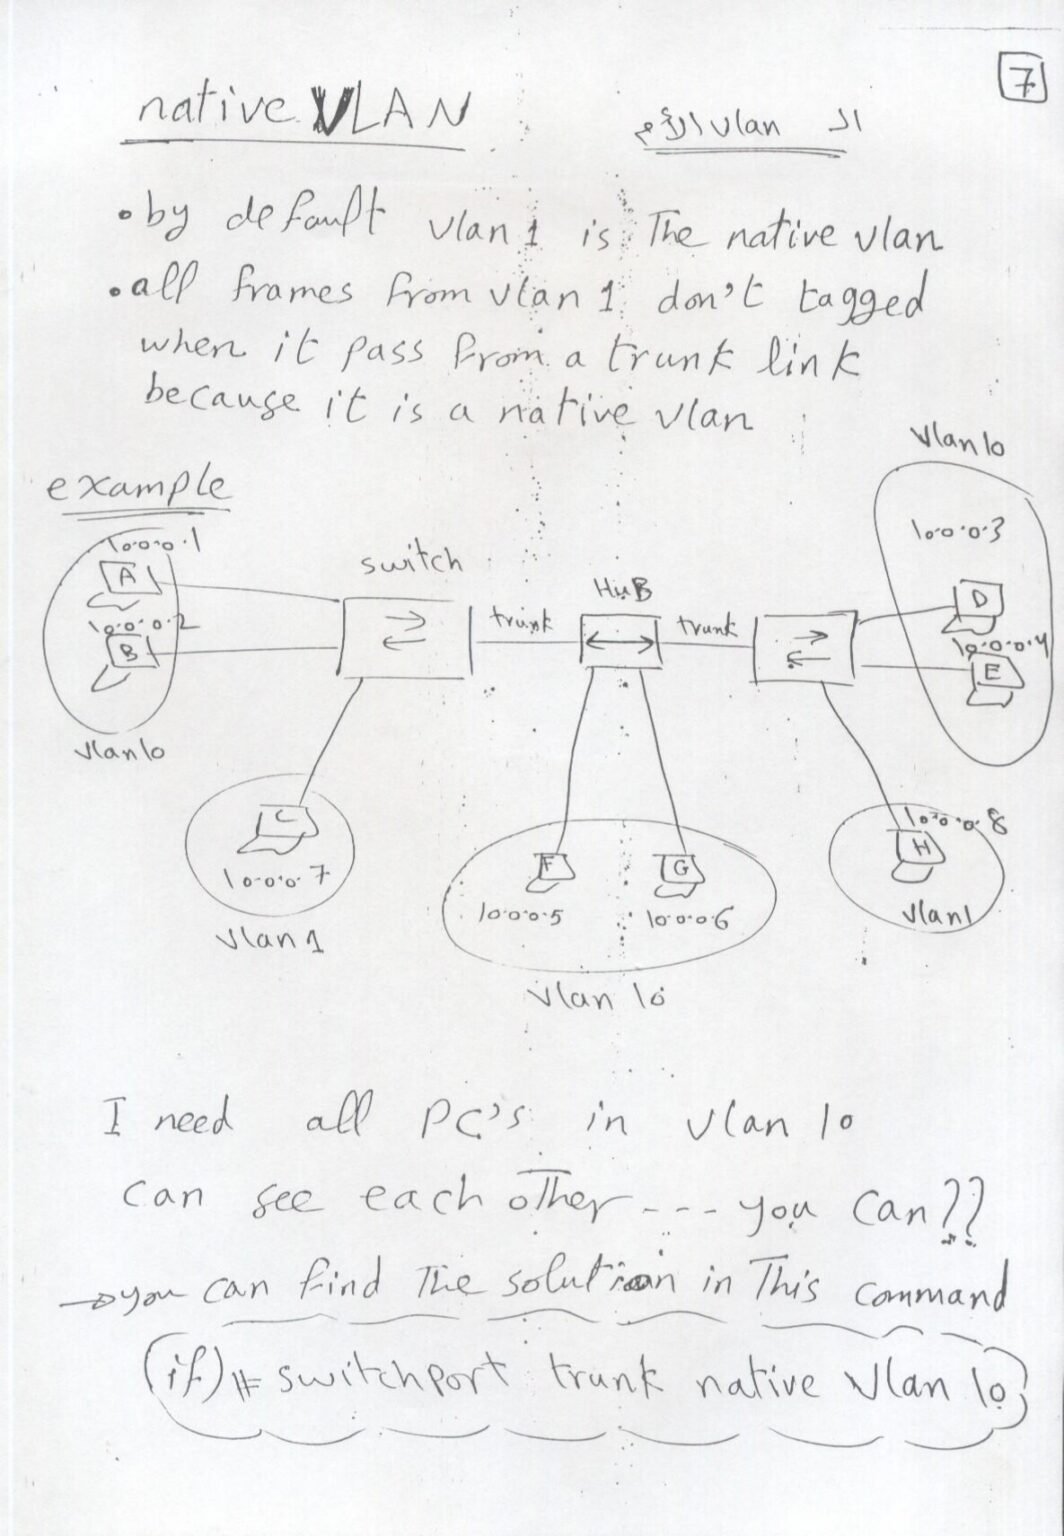 7
native VLAN
الـ vlan الأم
• by default vlan 1 is The native vlan
• all frames from vlan 1 don't tagged
when it pass from a trunk link
because it is a native vlan
example
Vlan 10
10.0.0.1
A
10.0.0.2
B
Vlan 10
switch
trunk
HuB
trunk
10.0.0.3
D
10.0.0.4
E
C
10.0.0.7
Vlan 1
F
10.0.0.5
G
10.0.0.6
Vlan 10
10.0.0.8
H
Vlan 1
I need all PC's in Vlan 10
can see each other --- you can??
→ you can find The solution in This command
(if)# switchport trunk native Vlan 10